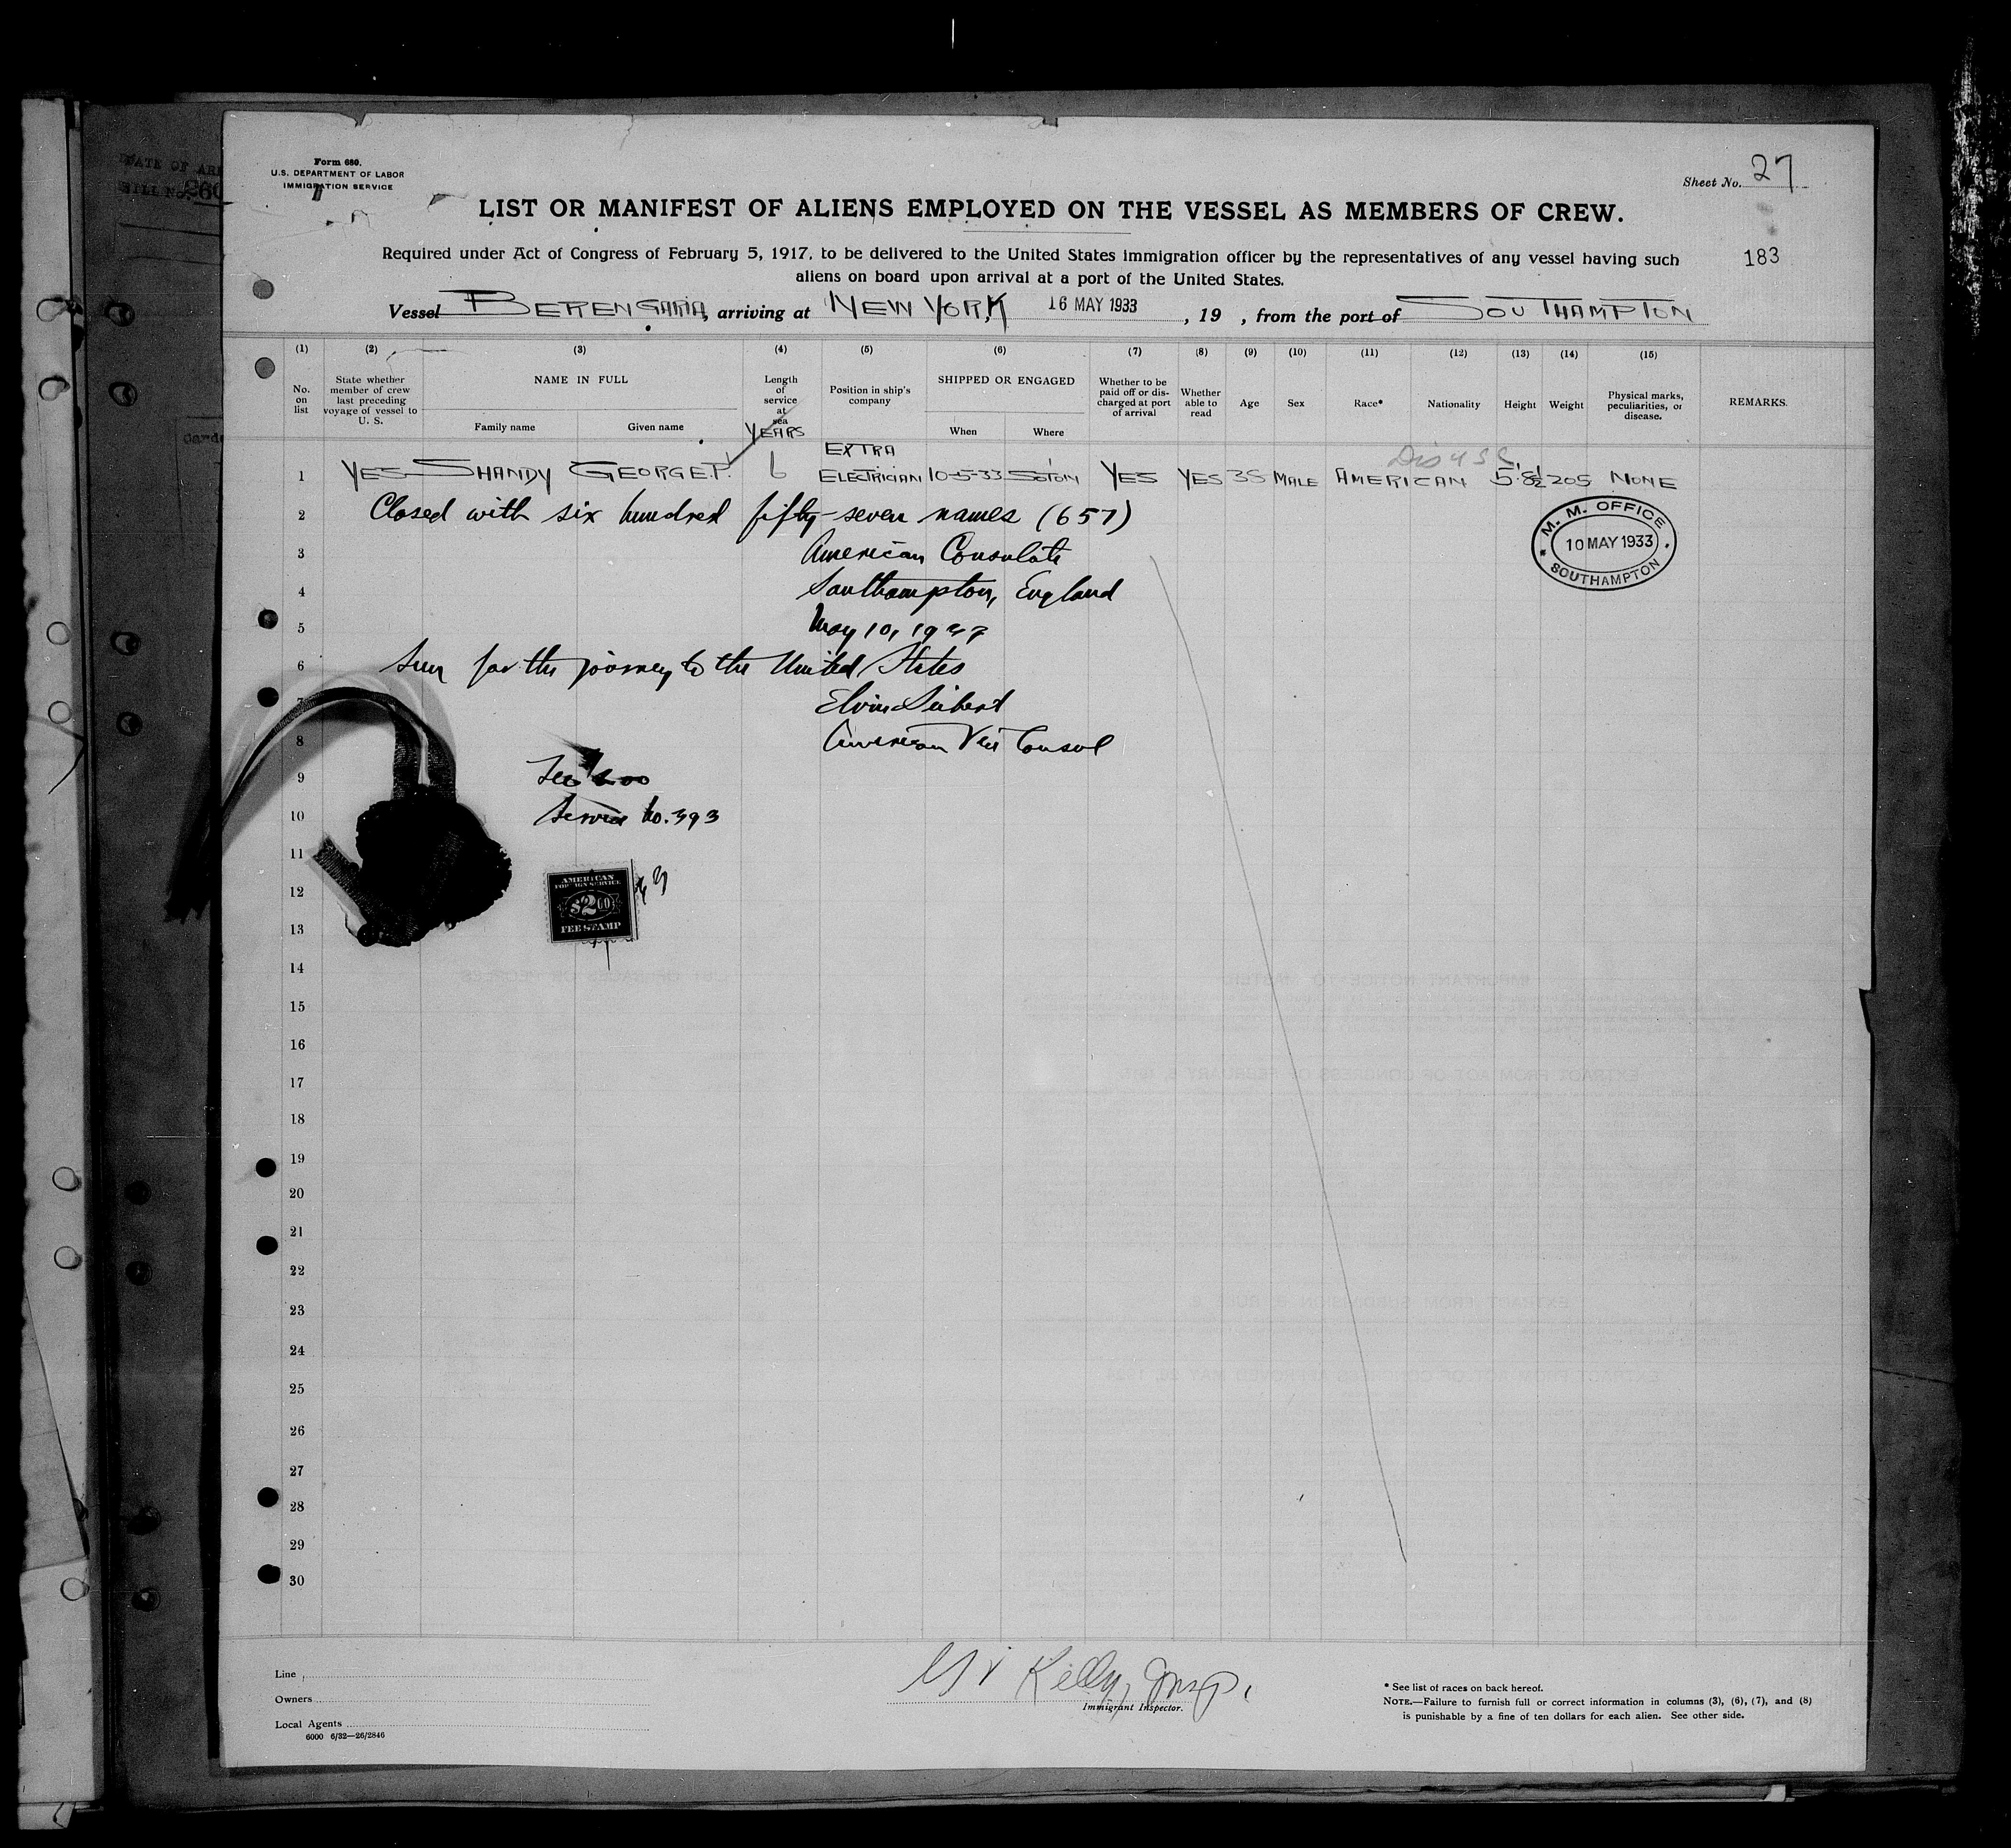 DATE OF ARR
BILL No. 260
Form 680.
U.S. DEPARTMENT OF LABOR
IMMIGRATION SERVICE
Sheet No. 27
LIST OR MANIFEST OF ALIENS EMPLOYED ON THE VESSEL AS MEMBERS OF CREW.
Required under Act of Congress of February 5, 1917, to be delivered to the United States immigration officer by the representatives of any vessel having such
aliens on board upon arrival at a port of the United States.
183
Vessel BERENGARIA, arriving at NEW YORK 16 MAY 1933, 19 , from the port of SOUTHAMPTON
(1) (2) (3) (4) (5) (6) (7) (8) (9) (10) (11) (12) (13) (14) (15)
No. on list
State whether member of crew last preceding voyage of vessel to U. S.
NAME IN FULL
Family name
Given name
Length of service at sea
YEARS
Position in ship's company
SHIPPED OR ENGAGED
When
Where
Whether to be paid off or discharged at port of arrival
Whether able to read
Age
Sex
Race*
Nationality
Height
Weight
Physical marks, peculiarities, or disease.
REMARKS.
EXTRA
1 YES SHANDY GEORGE P. 6 ELECTRICIAN 10-5-33 SOTON YES YES 35 MALE AMERICAN 5'8½ 205 NONE
2 Closed with six hundred fifty-seven names (657)
M. M. OFFICE
10 MAY 1933
SOUTHAMPTON
3 American Consulate
4 Southampton, England
5 May 10, 1933
6 Seen for the journey to the United States
7 Elvin Seibert
8 American Vice Consul
9
10 Service No. 393
11
AMERICAN
FOREIGN SERVICE
$2.00
FEE STAMP
12
13
14
15
16
17
18
19
20
21
22
23
24
25
26
27
28
29
30
Line
Owners
Local Agents
6000 6/32—26/2846
Kelly, Insp.
Immigrant Inspector.
* See list of races on back hereof.
NOTE.—Failure to furnish full or correct information in columns (3), (6), (7), and (8)
is punishable by a fine of ten dollars for each alien. See other side.